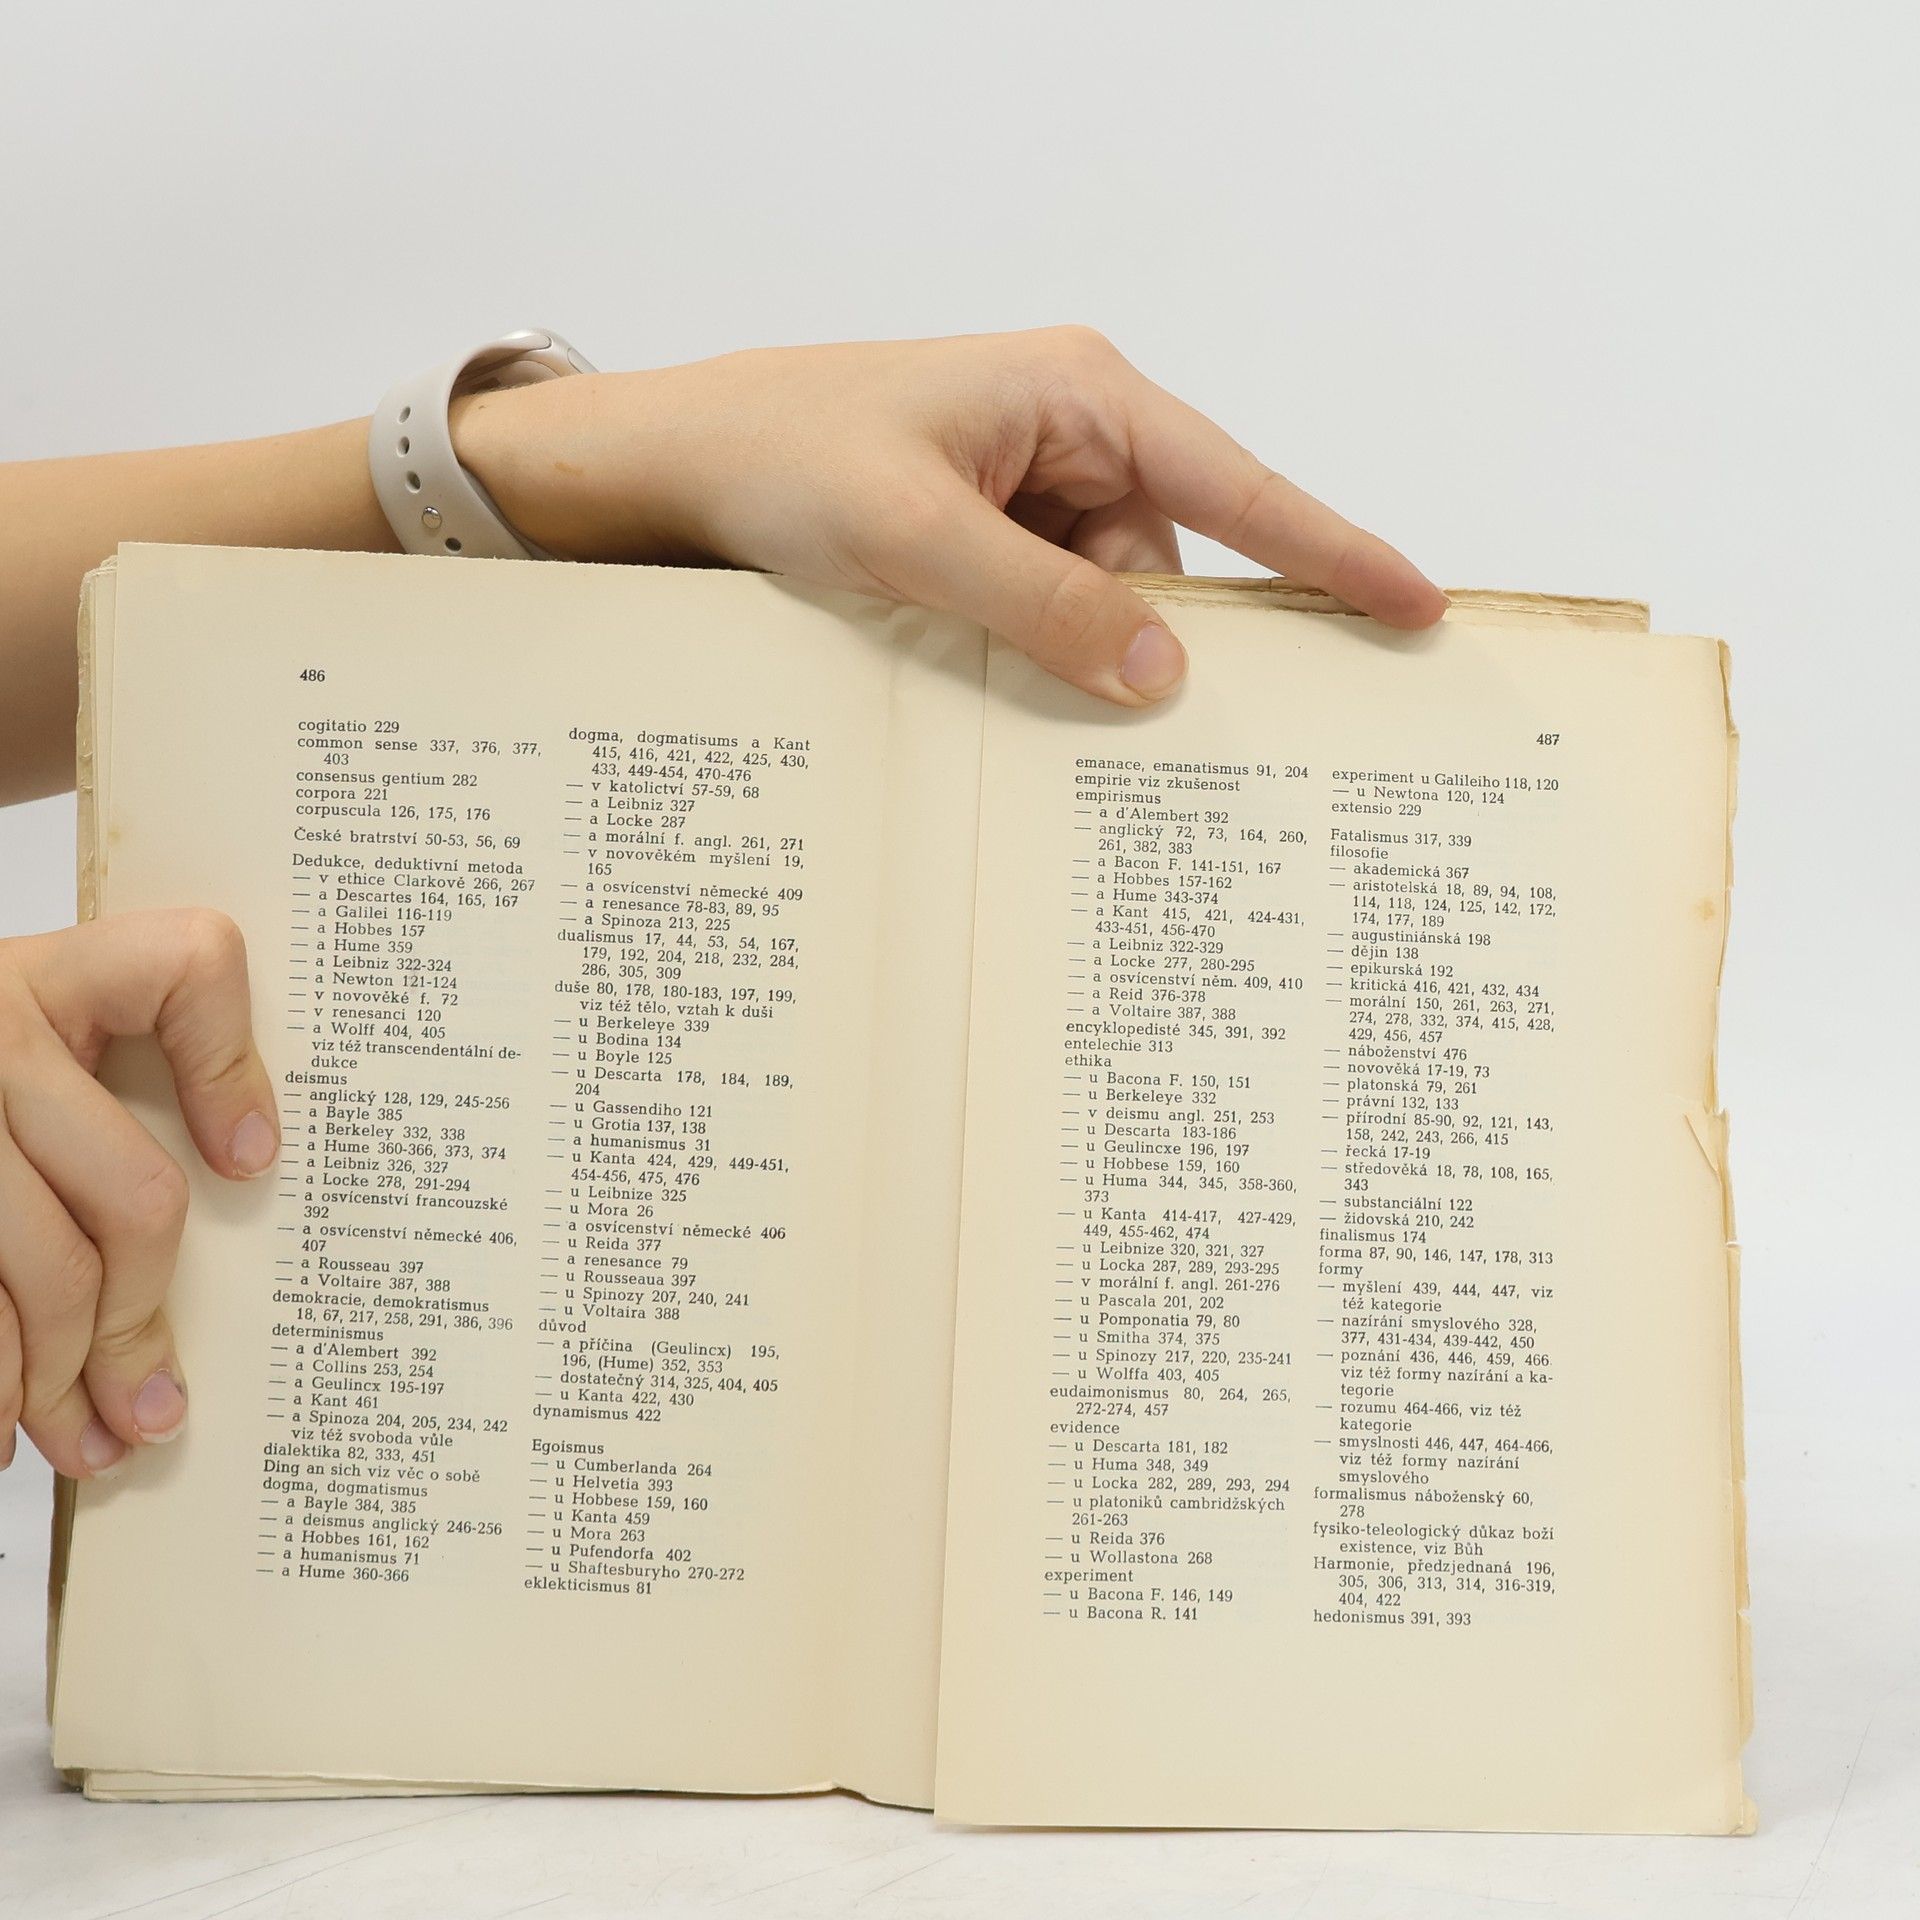 486
cogitatio 229
common sense 337, 376, 377,
403
consensus gentium 282
corpora 221
corpuscula 126, 175, 176
České bratrství 50-53, 56, 69
Dedukce, deduktivní metoda
— v ethice Clarkově 266, 267
— a Descartes 164, 165, 167
— a Galilei 116-119
— a Hobbes 157
— a Hume 359
— a Leibniz 322-324
— a Newton 121-124
— v novověké f. 72
— v renesanci 120
— a Wolff 404, 405
viz též transcendentální de-
dukce
deismus
— anglický 128, 129, 245-256
— a Bayle 385
— a Berkeley 332, 338
— a Hume 360-366, 373, 374
— a Leibniz 326, 327
— a Locke 278, 291-294
— a osvícenství francouzské
392
— a osvícenství německé 406,
407
— a Rousseau 397
— a Voltaire 387, 388
demokracie, demokratismus
18, 67, 217, 258, 291, 386, 396
determinismus
— a d'Alembert 392
— a Collins 253, 254
— a Geulincx 195-197
— a Kant 461
— a Spinoza 204, 205, 234, 242
viz též svoboda vůle
dialektika 82, 333, 451
Ding an sich viz věc o sobě
dogma, dogmatismus
— a Bayle 384, 385
— a deismus anglický 246-256
— a Hobbes 161, 162
— a humanismus 71
— a Hume 360-366
dogma, dogmatisums a Kant
415, 416, 421, 422, 425, 430,
433, 449-454, 470-476
— v katolictví 57-59, 68
— a Leibniz 327
— a Locke 287
— a morální f. angl. 261, 271
— v novověkém myšlení 19,
165
— a osvícenství německé 409
— a renesance 78-83, 89, 95
— a Spinoza 213, 225
dualismus 17, 44, 53, 54, 167,
179, 192, 204, 218, 232, 284,
286, 305, 309
duše 80, 178, 180-183, 197, 199,
viz též tělo, vztah k duši
— u Berkeleye 339
— u Bodina 134
— u Boyle 125
— u Descarta 178, 184, 189,
204
— u Gassendiho 121
— u Grotia 137, 138
— a humanismus 31
— u Kanta 424, 429, 449-451,
454-456, 475, 476
— u Leibnize 325
— u Mora 26
— a osvícenství německé 406
— u Reida 377
— a renesance 79
— u Rousseaua 397
— u Spinozy 207, 240, 241
— u Voltaira 388
důvod
— a příčina (Geulincx) 195,
196, (Hume) 352, 353
— dostatečný 314, 325, 404, 405
— u Kanta 422, 430
dynamismus 422
Egoismus
— u Cumberlanda 264
— u Helvetia 393
— u Hobbese 159, 160
— u Kanta 459
— u Mora 263
— u Pufendorfa 402
— u Shaftesburyho 270-272
eklekticismus 81
487
emanace, emanatismus 91, 204
empirie viz zkušenost
empirismus
— a d'Alembert 392
— anglický 72, 73, 164, 260,
261, 382, 383
— a Bacon F. 141-151, 167
— a Hobbes 157-162
— a Hume 343-374
— a Kant 415, 421, 424-431,
433-451, 456-470
— a Leibniz 322-329
— a Locke 277, 280-295
— a osvícenství něm. 409, 410
— a Reid 376-378
— a Voltaire 387, 388
encyklopedisté 345, 391, 392
entelechie 313
ethika
— u Bacona F. 150, 151
— u Berkeleye 332
— v deismu angl. 251, 253
— u Descarta 183-186
— u Geulincxe 196, 197
— u Hobbese 159, 160
— u Huma 344, 345, 358-360,
373
— u Kanta 414-417, 427-429,
449, 455-462, 474
— u Leibnize 320, 321, 327
— u Locka 287, 289, 293-295
— v morální f. angl. 261-276
— u Pascala 201, 202
— u Pomponatia 79, 80
— u Smitha 374, 375
— u Spinozy 217, 220, 235-241
— u Wolffa 403, 405
eudaimonismus 80, 264, 265,
272-274, 457
evidence
— u Descarta 181, 182
— u Huma 348, 349
— u Locka 282, 289, 293, 294
— u platoniků cambridžských
261-263
— u Reida 376
— u Wollastona 268
experiment
— u Bacona F. 146, 149
— u Bacona R. 141
experiment u Galileiho 118, 120
— u Newtona 120, 124
extensio 229
Fatalismus 317, 339
filosofie
— akademická 367
— aristotelská 18, 89, 94, 108,
114, 118, 124, 125, 142, 172,
174, 177, 189
— augustiniánská 198
— dějin 138
— epikurská 192
— kritická 416, 421, 432, 434
— morální 150, 261, 263, 271,
274, 278, 332, 374, 415, 428,
429, 456, 457
— náboženství 476
— novověká 17-19, 73
— platonská 79, 261
— právní 132, 133
— přírodní 85-90, 92, 121, 143,
158, 242, 243, 266, 415
— řecká 17-19
— středověká 18, 78, 108, 165,
343
— substanciální 122
— židovská 210, 242
finalismus 174
forma 87, 90, 146, 147, 178, 313
formy
— myšlení 439, 444, 447, viz
též kategorie
— nazírání smyslového 328,
377, 431-434, 439-442, 450
— poznání 436, 446, 459, 466
viz též formy nazírání a ka-
tegorie
— rozumu 464-466, viz též
kategorie
— smyslnosti 446, 447, 464-466,
viz též formy nazírání
smyslového
formalismus náboženský 60,
278
fysiko-teleologický důkaz boží
existence, viz Bůh
Harmonie, předzjednaná 196,
305, 306, 313, 314, 316-319,
404, 422
hedonismus 391, 393